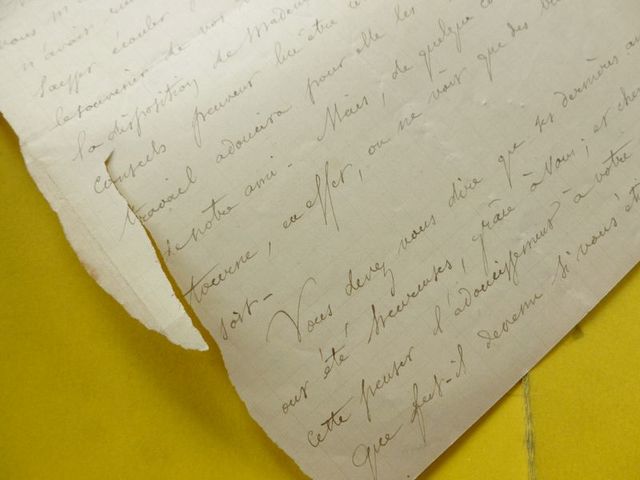 n'avais
laisser écouler
le souvenir de vos
la disposition de Madem
conseils peuvent lui être
travail adoucira pour elle les
de notre ami. Mais, de quelque co
tourne, en effet, on ne voit que des
soit.
Vous devez vous dire que ses dernières an
ont été heureuses, grâce à Vous; et cher
cette penser d'adoucissement à votre
Que fût-il devenu si vous n'éti